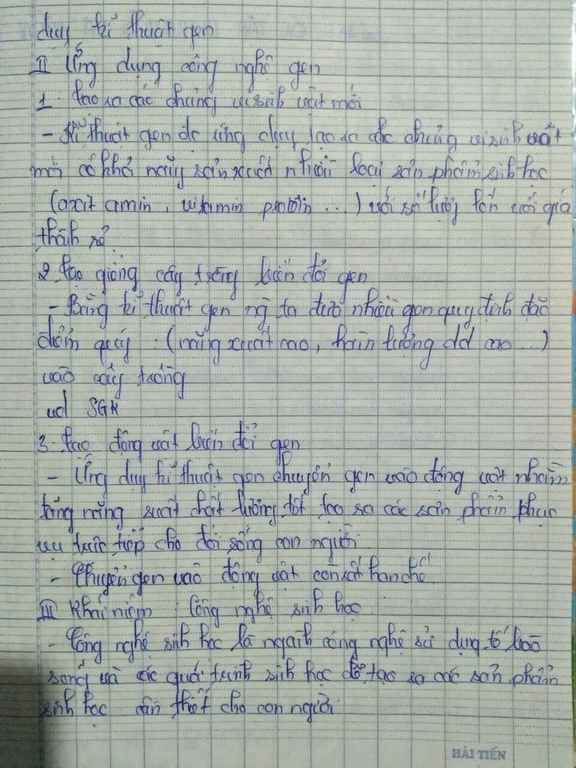 dụng kĩ thuật gen
II Ứng dụng công nghệ gen
1. tạo ra các chủng vi sinh vật mới
- Kĩ thuật gen đc ứng dụng tạo ra các chủng vi sinh vật
mới có khả năng sản xuất nhiều loại sản phẩm sinh học
(axit amin, vitamin protein ...) với số lượng lớn với giá
thành rẻ
2. tạo giống cây trồng biến đổi gen
- Bằng kĩ thuật gen ng ta đưa nhiều gen quy định đặc
điểm quý : (năng xuất cao, hàm lượng dd cao ...)
vào cây trồng
vd SGK
3. tạo động vật biến đổi gen
- Ứng dụng kĩ thuật gen chuyển gen vào động vật nhằm
tăng năng suất chất lượng tốt tạo ra các sản phẩm phục
vụ trực tiếp cho đời sống con người
- Chuyển gen vào động vật còn rất hạn chế
III Khái niệm : Công nghệ sinh học
- Công nghệ sinh học là ngành công nghệ sử dụng tế bào
sống và các quá trình sinh học để tạo ra các sản phẩm
sinh học cần thiết cho con người.
HẢI TIẾN